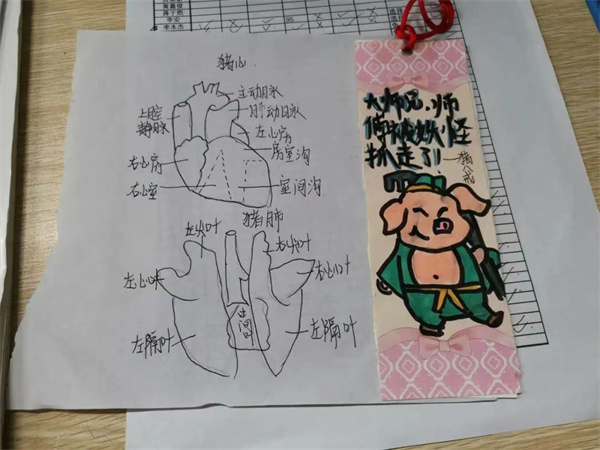 猪心
主动脉
肺动脉
上腔
静脉
左心房
房室沟
右心房
右心室
室间沟
猪肺
左尖叶
右尖叶
左心叶
右心叶
中间叶
左膈叶
左膈叶
大师兄.师
傅被妖怪
抓走了!
猪八戒